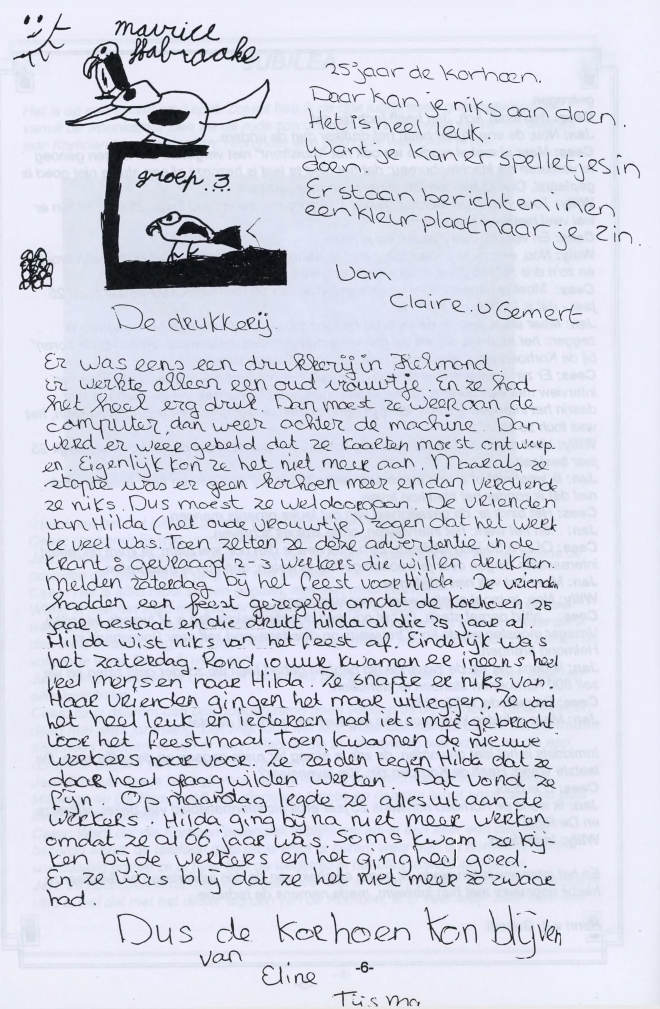 maurice
Habraake
groep. 3
25 jaar de korhoen.
Daar kan je niks aan doen.
Het is heel leuk.
Want je kan er spelletjes in
doen.
Er staan berichten in en
een kleurplaat naar je zin.
Van
Claire. v Gemert
De drukkerij.
Er was eens een drukkerij in Helmond.
Er werkte alleen een oud vrouwtje. En ze had
het heel erg druk. Dan moest ze weer aan de
computer, dan weer achter de machine. Dan
werd er weer gebeld dat ze kaarten moest ontwerp
en. Eigenlijk kon ze het niet meer aan. Maar als ze
stopte was er geen korhoen meer en dan verdiende
ze niks. Dus moest ze wel doorgaan. De vrienden
van Hilda (het oude vrouwtje) zagen dat het werk
te veel was. Toen zetten ze deze advertentie in de
krant: gevraagd 2-3 werkers die willen drukken.
Melden zaterdag bij het feest voor Hilda. De vrienden
hadden een feest geregeld omdat de korhoen 25
jaar bestaat en die drukt hilda al die 25 jaar al.
Hilda wist niks van het feest af. Eindelijk was
het zaterdag. Rond 10 uur kwamen ze ineens heel
veel mensen naar Hilda. Ze snapte er niks van.
Haar vrienden gingen het maar uitleggen. Ze werd
het heel leuk en iedereen had iets mee gebracht
voor het feestmaal. Toen kwamen de nieuwe
werkers naar voor. Ze zeiden tegen Hilda dat ze
daar heel graag wilden werken. Dat vond ze
fijn. Op maandag legde ze alles uit aan de
werkers. Hilda ging bijna niet meer werken
omdat ze al 66 jaar was. Soms kwam ze kij-
ken bij de werkers en het ging heel goed.
En ze was blij dat ze het niet meer zo zwaar
had.
Dus de korhoen kon blijven
van
Eline
-6-
Tijsma